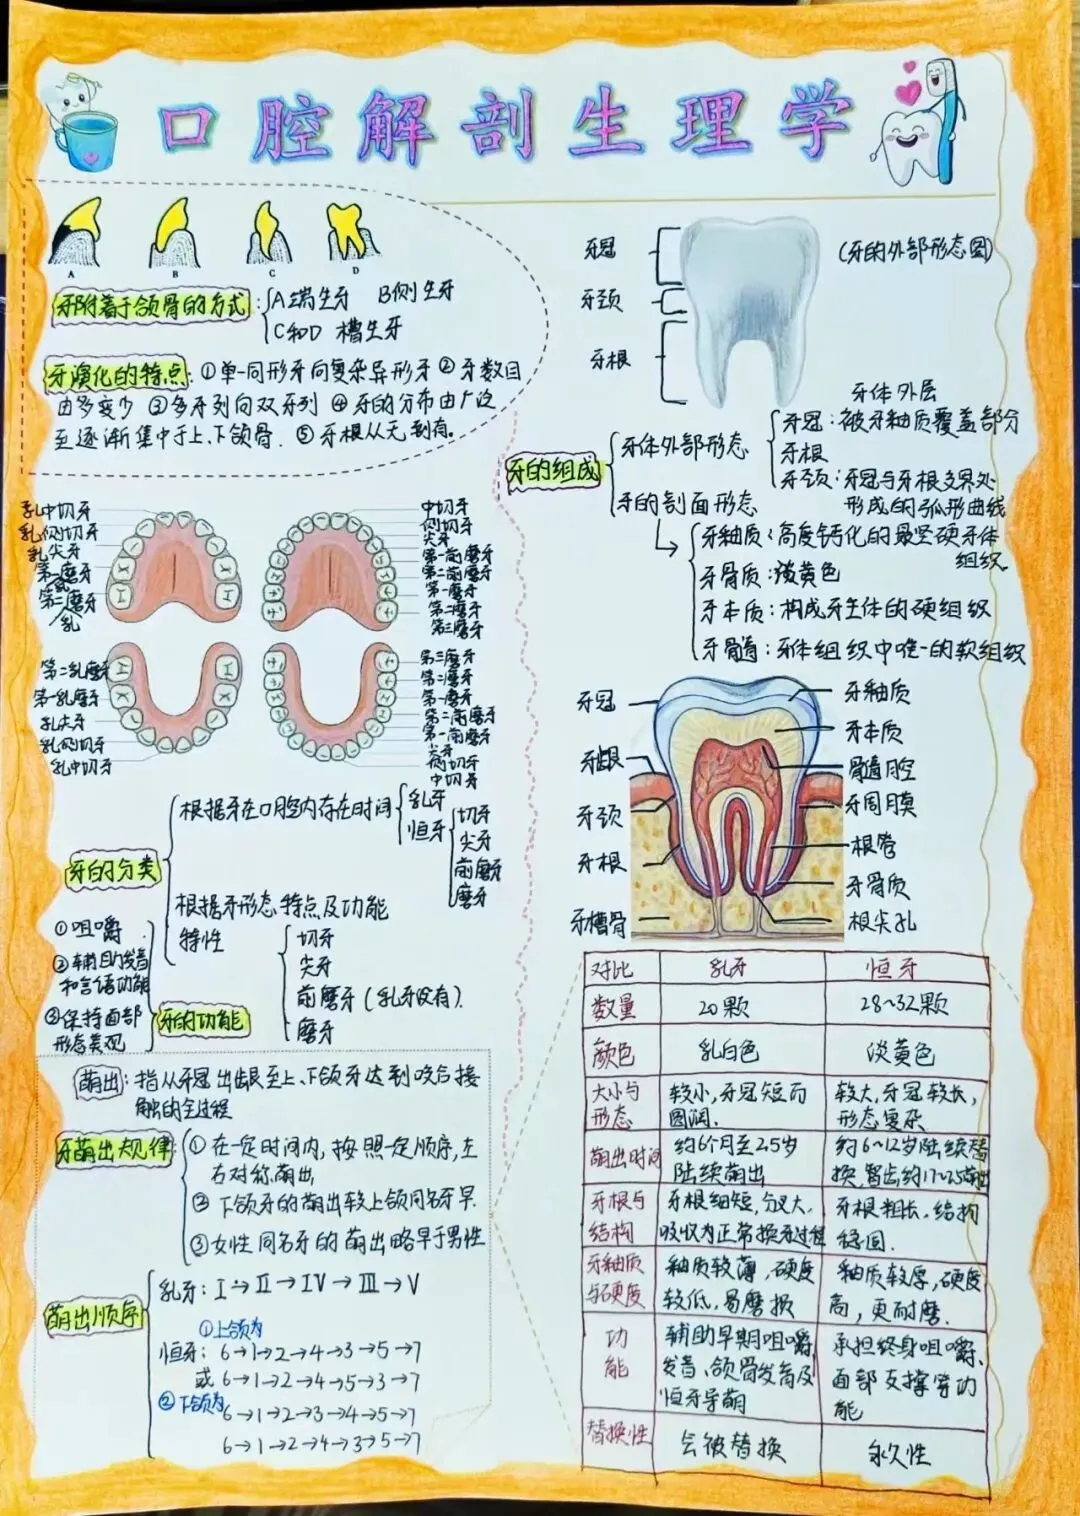 口腔解剖生理学
A B C D
牙附着于颌骨的方式：A端生牙 B侧生牙
C和D 槽生牙
牙演化的特点：①单一同形牙向复杂异形牙②牙数目
由多变少 ③多牙列向双牙列 ④牙的分布由广泛
至逐渐集中于上、下颌骨. ⑤牙根从无到有。
乳中切牙
乳侧切牙
乳尖牙
第一乳磨牙
第二乳磨牙
中切牙
侧切牙
尖牙
第一前磨牙
第二前磨牙
第一磨牙
第二磨牙
第三磨牙
第二乳磨牙
第一乳磨牙
乳尖牙
乳侧切牙
乳中切牙
第三磨牙
第二磨牙
第一磨牙
第二前磨牙
第一前磨牙
尖牙
侧切牙
中切牙
牙的分类
根据牙在口腔内存在时间
乳牙
恒牙
切牙
尖牙
前磨牙
磨牙
根据牙形态特点及功能
特性
切牙
尖牙
前磨牙(乳牙没有).
磨牙
①咀嚼
②辅助发音
和言语功能
③保持面部
形态美观
牙的功能
萌出：指从牙冠出龈至上、下颌牙达到咬合接
触的全过程
牙萌出规律
①在一定时间内,按照一定顺序,左
右对称萌出
②下颌牙的萌出较上颌同名牙早.
③女性同名牙的萌出略早于男性
萌出顺序
乳牙：I→II→IV→III→V
①上颌为
恒牙：6→1→2→4→3→5→7
或 6→1→2→4→5→3→7
②下颌为
6→1→2→3→4→5→7
6→1→2→4→3→5→7
牙冠
牙颈
牙根
(牙的外部形态图)
牙体外层
牙的组成
牙体外部形态
牙冠：被牙釉质覆盖部分
牙根
牙颈：牙冠与牙根交界处
形成的弧形曲线
牙的剖面形态
牙釉质：高度钙化的最坚硬牙体
组织
牙骨质：淡黄色
牙本质：构成牙主体的硬组织
牙髓：牙体组织中唯一的软组织
牙冠
牙龈
牙颈
牙根
牙槽骨
牙釉质
牙本质
髓腔
牙周膜
根管
牙骨质
根尖孔
对比 乳牙 恒牙
数量 20颗 28~32颗
颜色 乳白色 淡黄色
大小与 较小,牙冠短而 较大,牙冠较长,
形态 圆润. 形态复杂
萌出时间 约6个月至2.5岁 约6~12岁陆续替
陆续萌出 换,智齿约17~25萌出
牙根与 牙根细短,分叉大, 牙根粗长.结构
结构 吸收为正常换牙过程 稳固.
牙釉质 釉质较薄,硬度 釉质较厚,硬度
与硬度 较低,易磨损 高,更耐磨.
功 辅助早期咀嚼, 承担终身咀嚼、
能 发音、颌骨发育及 面部支撑等功
恒牙导萌 能
替换性 会被替换 永久性